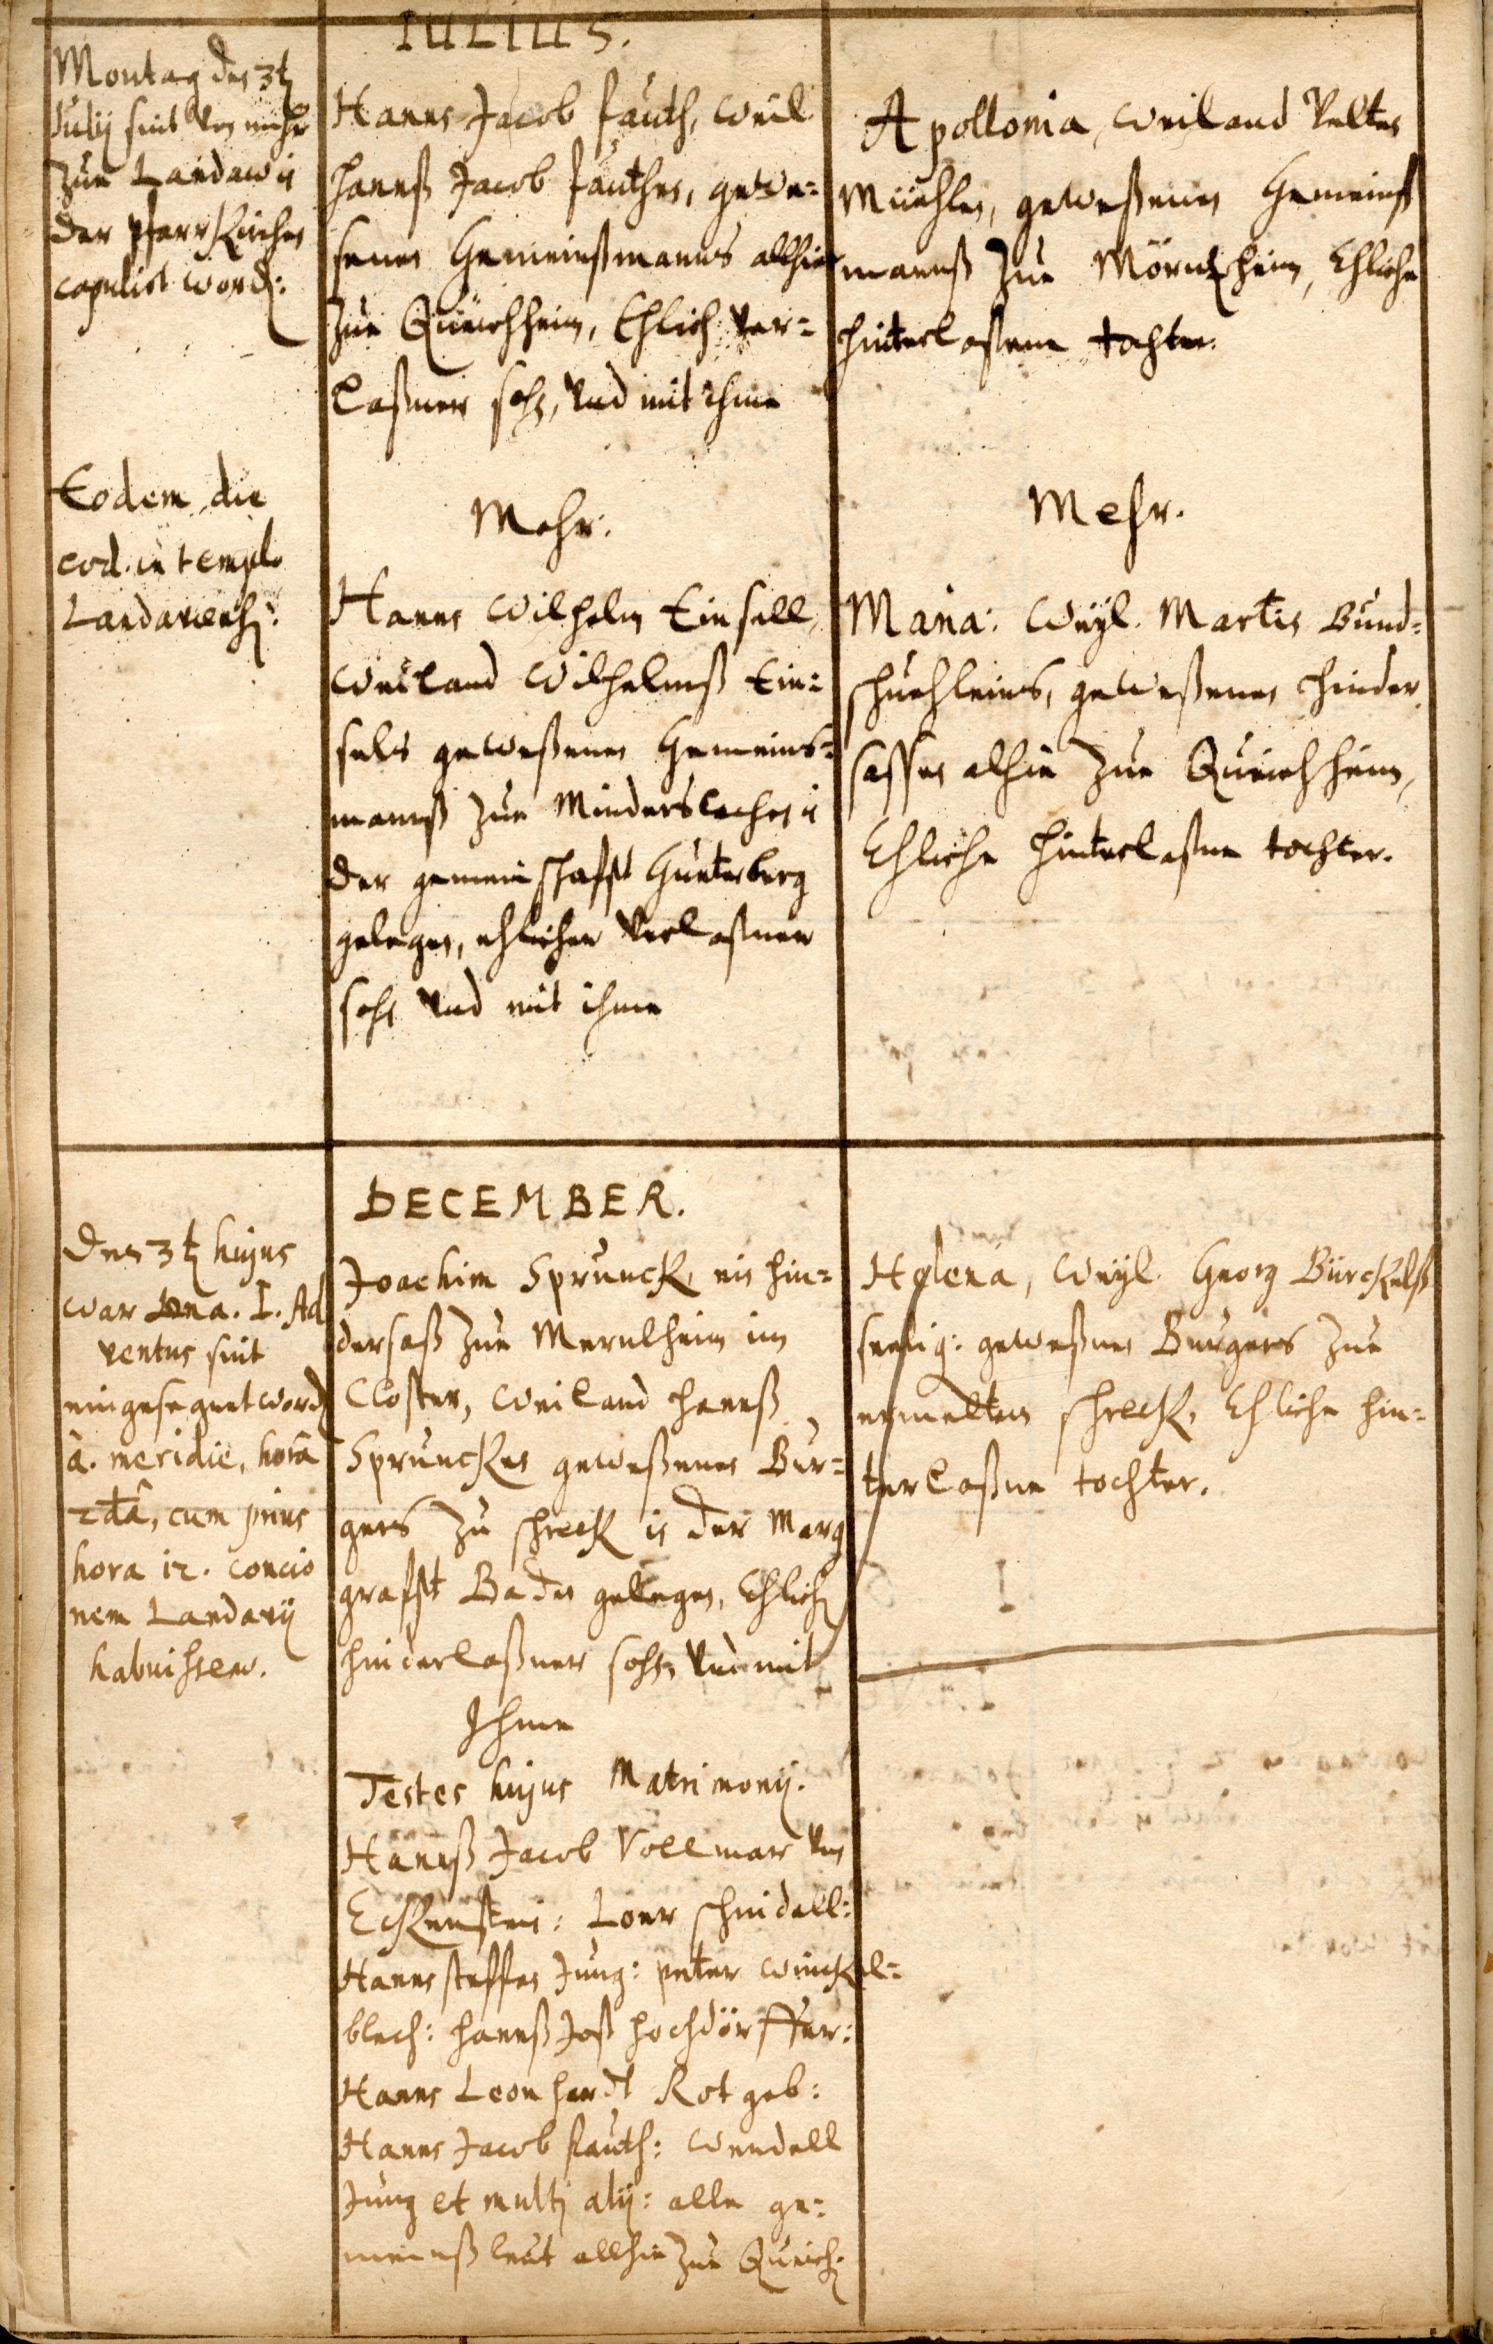 IULIUS.
Montag den 3t
Julij sint von mihr
zue Landaw in
der pfarrkirchen
copulirt word:
Hanns Jacob fauth, weil
hannß Jacob fauthen, gewe=
senen Gemeinßmanns allhier
zue Queichheim, Ehlich ver=
laßner sohn, vnd mit ihme
Apollonia, weiland Velten
Müehlen, geweßenen Gemeinß
mannß zue Mörntzheim, Ehliche
hinterlaßene tochter.
Eodem die
eod. in templo
Landaviensi:
Mehr:
Hanns Wilhelm Einsell,
weiland Wilhelmß Ein=
sels geweßenen Gemeins=
mannß zue Minderslachen in
der gemeinschafft Guttenberg
gelegen, ehlicher verlaßner
sohn vnd mit ihme
Mehr.
Maria: Weyl. Martin Bund=
schuehleins, geweßenen hinder
sassen alhie zue Queichheim,
Ehliche hinterlaßne tochter.
DECEMBER.
Den 3t hujus
war Dna. I. Ad
ventus sint
eingesegnet word
à. meridie, horâ
2dâ, cum prius
hora 12. concio
nem Landavij
habuissem.
Joachim Sprunck, ein hin=
dersaß zue Merulheim im
Closter, weiland hannß
Sprunckes geweßenen Bur=
gers zu schreck in der Marg
grafft Baden gelegen, Ehlich
hinderlaßner sohn, vnd mit
Ihme
Helena, Weyl. Georg Bürckelß
seelig: geweßnen Burgers zue
ermelten schreck, Ehliche hin=
terlaßne tochter.
Testes hujus Matrimonij.
Hannß Jacob Vollmar von
Eckenstein: Loer schnidell:
Hanns steffen Jung: peter winckel=
blech: hannß Jost hochdörffer:
Hanns Leonhardt Rotgeb:
Hanns Jacob fauth: Wendell
Jung et multj alij: alle ge=
meinßleut allhie zue Queich: